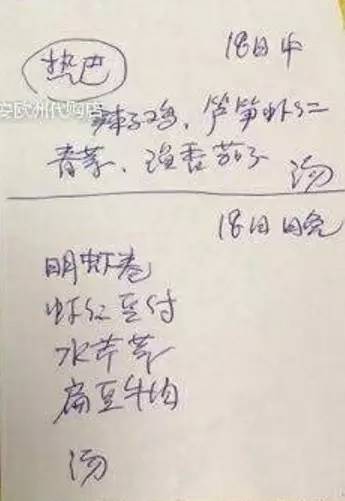 热巴
18日中
安欧洲代购店
辣子鸡、芦笋虾仁
青菜、鱼香茄子
汤
18日晚
明虾卷
虾仁豆付
水芹菜
扁豆牛肉
汤